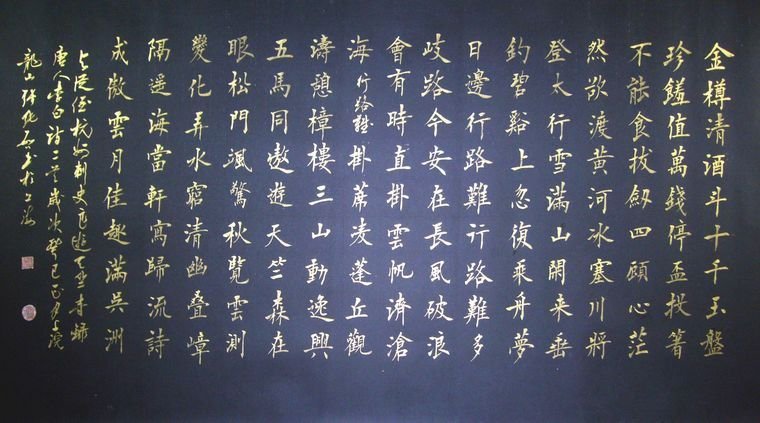 金樽清酒斗十千玉盤
珍饈值萬錢停盃投箸
不能食拔劒四顧心茫
然欲渡黃河冰塞川將
登太行雪滿山閑来垂
釣碧谿上忽復乘舟夢
日邊行路難行路難多
歧路今安在長風破浪
會有時直掛雲帆濟滄
海行路難掛席凌蓬丘觀
濤憩樟樓三山動逸興
五馬同遨遊天竺森在
眼松門颯驚秋覽雲測
變化弄水窮清幽疊嶂
隔遥海當軒寫歸流詩
成傲雲月佳趣滿吳洲
與從侄杭州刺史良遊天竺寺錄
唐人李白詩二首歲次癸巳正月
龍山書於上海